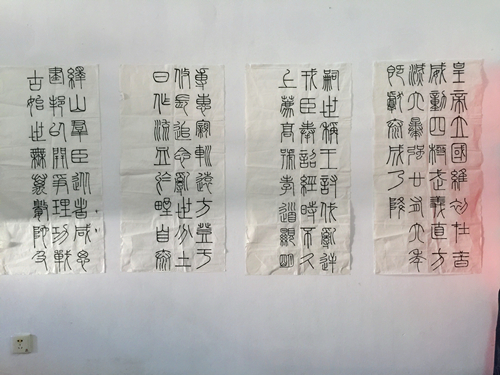 皇帝立國維初在昔
威動四極武義直方
滅六暴強廿有六年
既獻泰成乃降
嗣世稱王討伐亂逆
戎臣奉詔經時不久
上薦高號孝道顯明
專惠寴巡遠方登于
攸長追念亂世分土
日作流血於野自泰
繹山羣臣從者咸思
建邦以開爭理功戰
古始世無萬數陀及